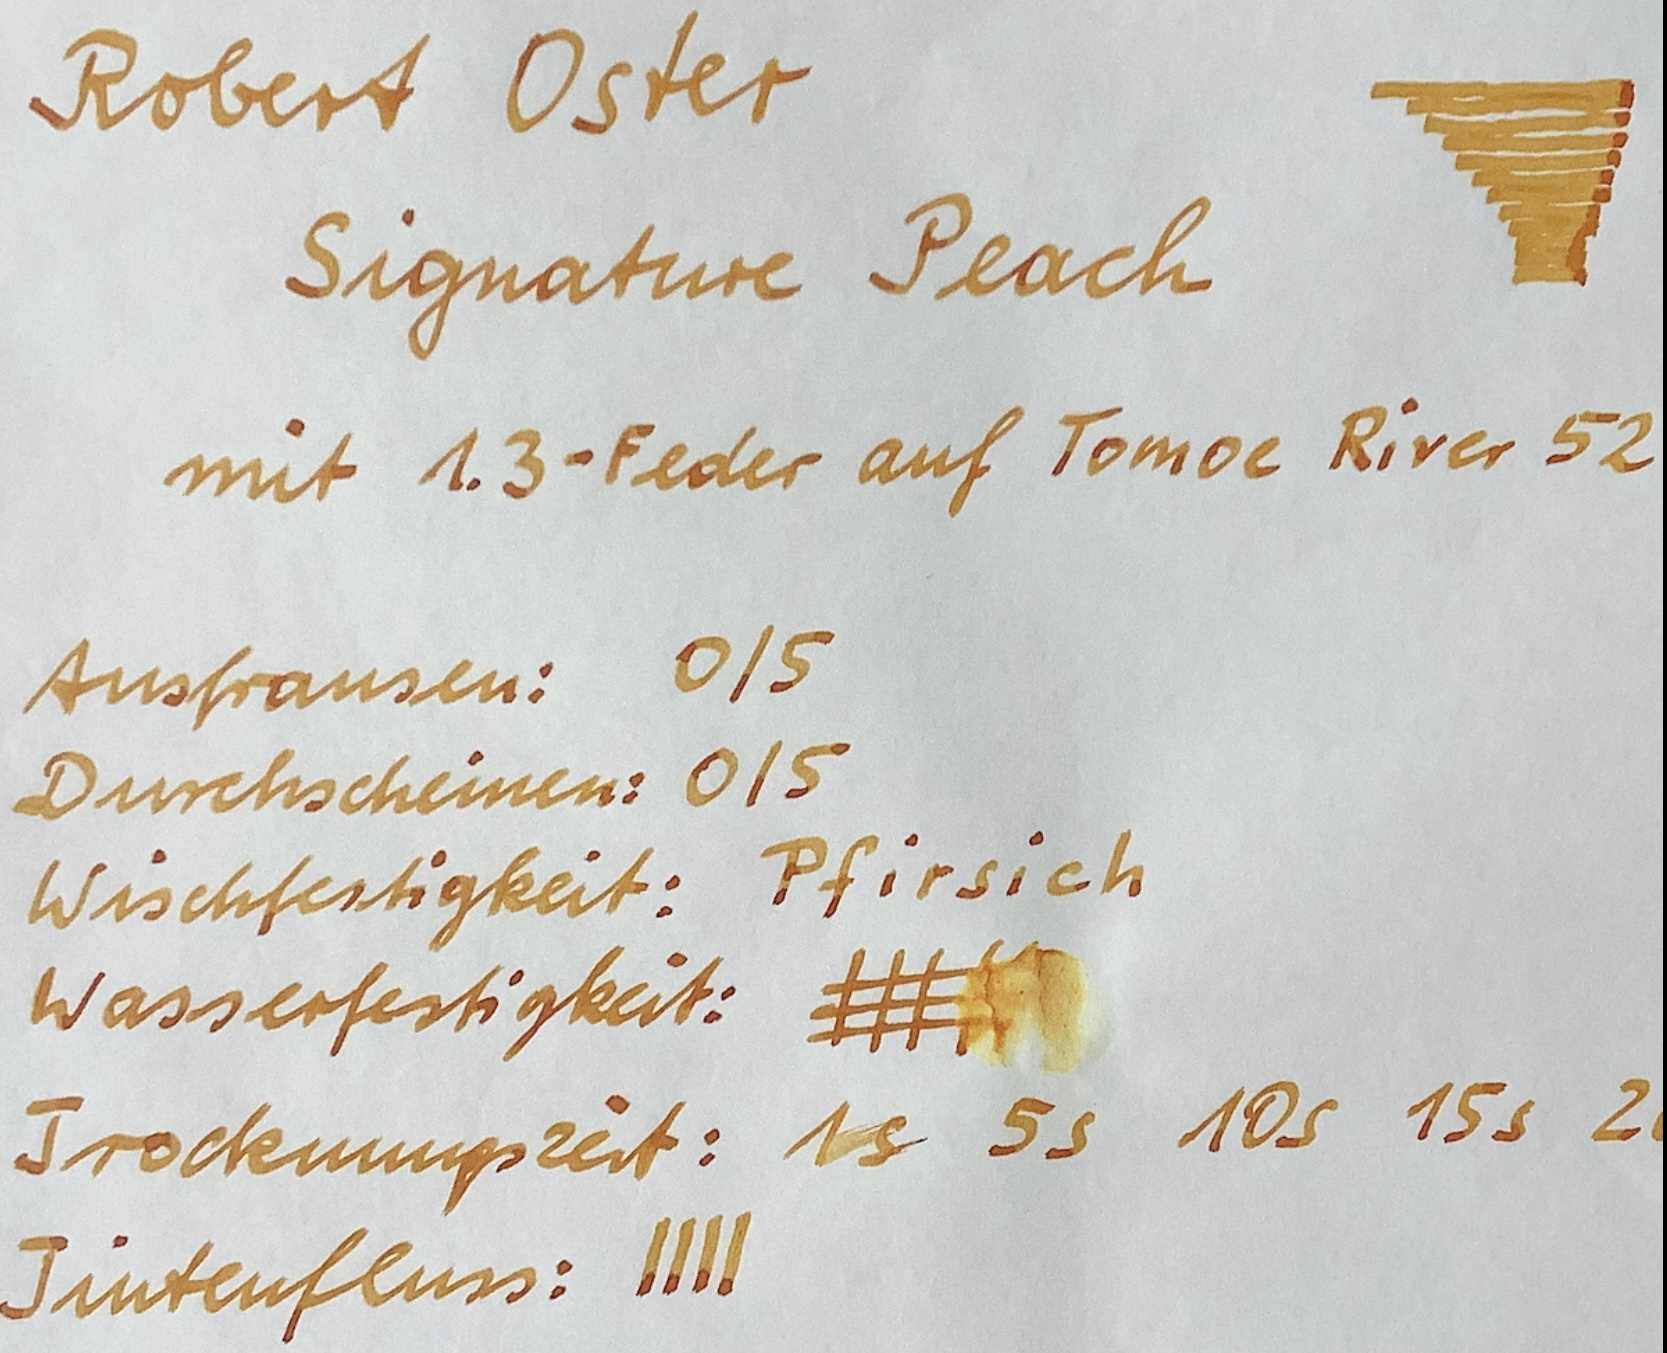 Robert Oster
Signature Peach
mit 1.3-Feder auf Tomoe River 52
Ausfransen: 0/5
Durchscheinen: 0/5
Wischfestigkeit: Pfirsich
Wasserfestigkeit:
Trocknungszeit: 1s 5s 10s 15s
Tintenfluss: